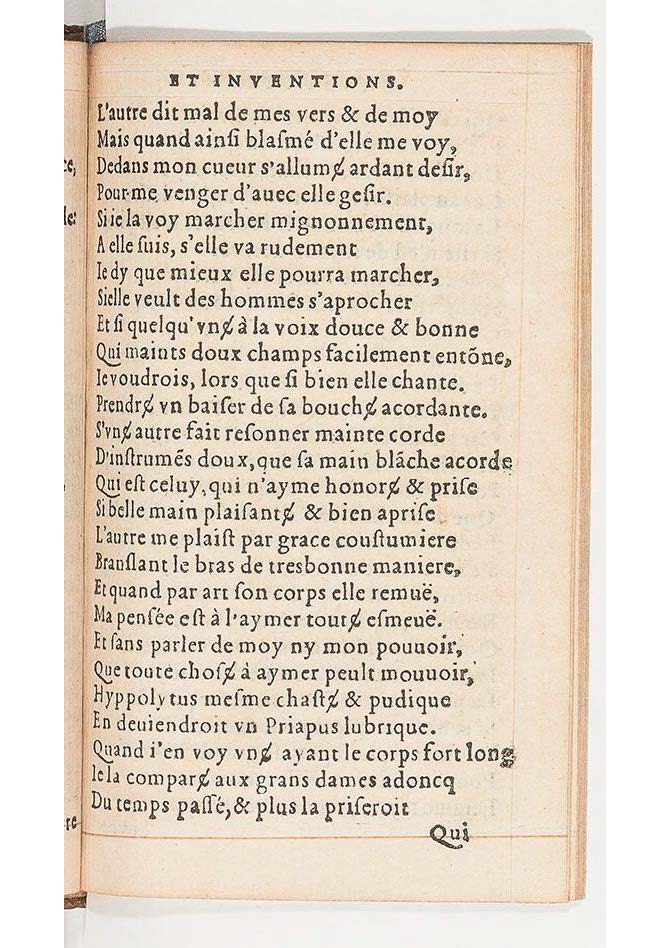 ET INVENTIONS.
L'autre dit mal de mes vers & de moy
Mais quand ainſi blaſmé d'elle me voy,
Dedans mon cueur s'allumɇ ardant deſir,
Pour me venger d'auec elle geſir.
Si ie la voy marcher mignonnement,
A elle ſuis, s'elle va rudement
Ie dy que mieux elle pourra marcher,
Si elle veult des hommes s'aprocher
Et ſi quelqu'vnɇ à la voix douce & bonne
Qui maints doux champs facilement entõne,
Ie voudrois, lors que ſi bien elle chante.
Prendrɇ vn baiſer de ſa bouchɇ acordante.
S'vnɇ autre fait reſonner mainte corde
D'inſtrumẽs doux, que ſa main blãche acorde
Qui eſt celuy, qui n'ayme honorɇ & priſe
Si belle main plaiſantɇ & bien apriſe
L'autre me plaiſt par grace couſtumiere
Branſlant le bras de tresbonne maniere,
Et quand par art ſon corps elle remuë,
Ma penſée eſt à l'aymer toutɇ eſmeuë.
Et ſans parler de moy ny mon pouuoir,
Que toute choſɇ à aymer peult mouuoir,
Hyppolytus meſme chaſtɇ & pudique
En deuiendroit vn Priapus lubrique.
Quand i'en voy vnɇ ayant le corps fort long
Ie la comparɇ aux grans dames adoncq
Du temps paſſé, & plus la priſeroit
Qui
re